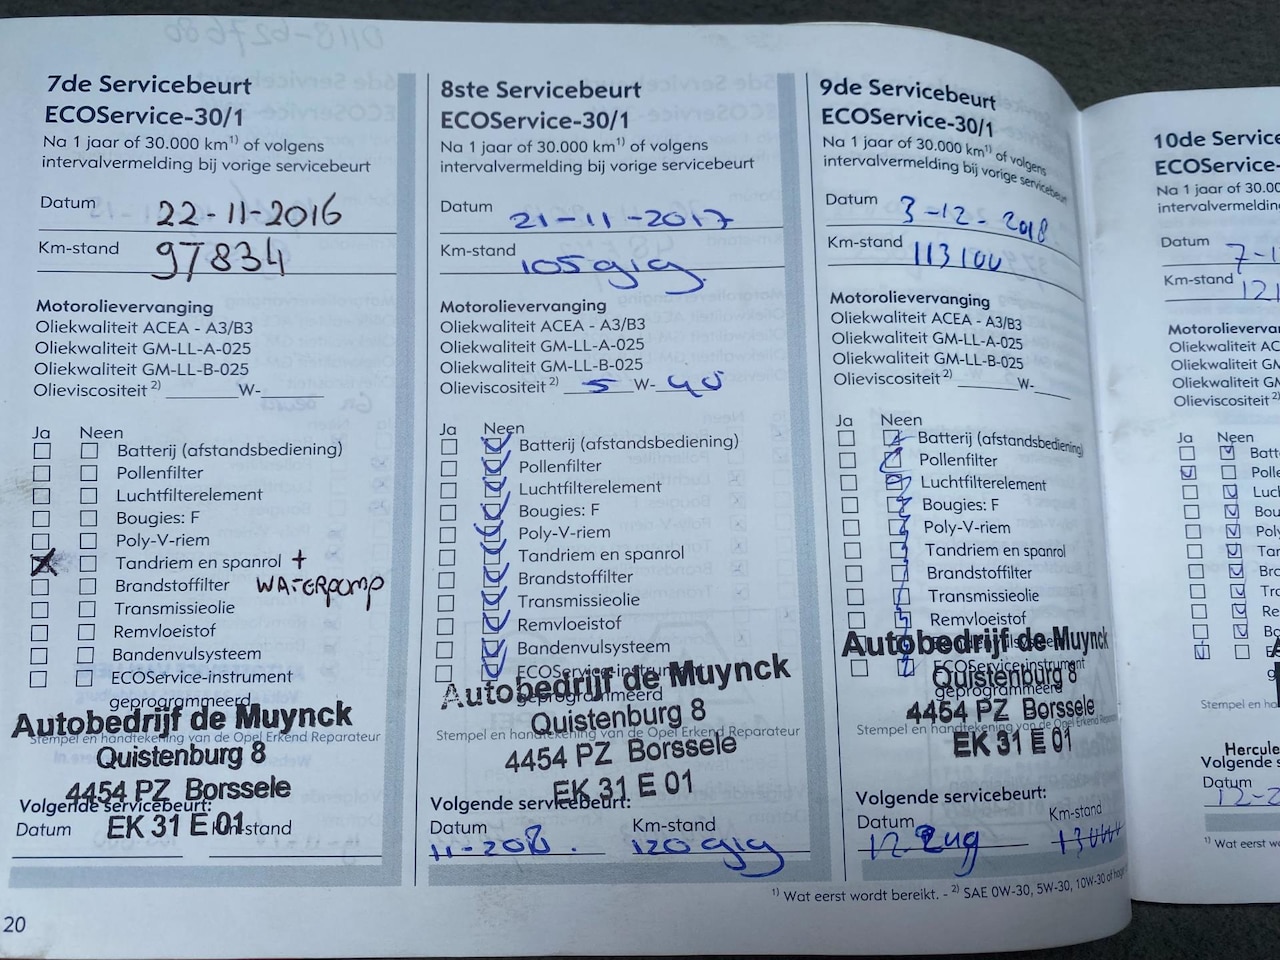 7de Servicebeurt
ECOService-30/1
Na 1 jaar of 30.000 km¹⁾ of volgens
intervalvermelding bij vorige servicebeurt
Datum 22-11-2016
Km-stand 97834
Motorolievervanging
Oliekwaliteit ACEA - A3/B3
Oliekwaliteit GM-LL-A-025
Oliekwaliteit GM-LL-B-025
Olieviscositeit ²⁾ W-
Ja Neen
Batterij (afstandsbediening)
Pollenfilter
Luchtfilterelement
Bougies: F
Poly-V-riem
Tandriem en spanrol +
Brandstoffilter WATERPOMP
Transmissieolie
Remvloeistof
Bandenvulsysteem
ECOService-instrument
geprogrammeerd
Autobedrijf de Muynck
Stempel en handtekening van de Opel Erkend Reparateur
Quistenburg 8
4454 PZ Borssele
EK 31 E 01
Volgende servicebeurt:
Datum Km-stand
20
8ste Servicebeurt
ECOService-30/1
Na 1 jaar of 30.000 km¹⁾ of volgens
intervalvermelding bij vorige servicebeurt
Datum 21-11-2017
Km-stand 105919
Motorolievervanging
Oliekwaliteit ACEA - A3/B3
Oliekwaliteit GM-LL-A-025
Oliekwaliteit GM-LL-B-025
Olieviscositeit ²⁾ 5 W- 40
Ja Neen
Batterij (afstandsbediening)
Pollenfilter
Luchtfilterelement
Bougies: F
Poly-V-riem
Tandriem en spanrol
Brandstoffilter
Transmissieolie
Remvloeistof
Bandenvulsysteem
ECOService-instrument
geprogrammeerd
Autobedrijf de Muynck
Quistenburg 8
Stempel en handtekening van de Opel Erkend Reparateur
4454 PZ Borssele
EK 31 E 01
Volgende servicebeurt:
Datum Km-stand
11-2018. 120919
9de Servicebeurt
ECOService-30/1
Na 1 jaar of 30.000 km¹⁾ of volgens
intervalvermelding bij vorige servicebeurt
Datum 3-12-2018
Km-stand 113100
Motorolievervanging
Oliekwaliteit ACEA - A3/B3
Oliekwaliteit GM-LL-A-025
Oliekwaliteit GM-LL-B-025
Olieviscositeit ²⁾ W-
Ja Neen
Batterij (afstandsbediening)
Pollenfilter
Luchtfilterelement
Bougies: F
Poly-V-riem
Tandriem en spanrol
Brandstoffilter
Transmissieolie
Remvloeistof
ECOService-instrument
geprogrammeerd
Autobedrijf de Muynck
Quistenburg 8
4454 PZ Borssele
Stempel en handtekening van de Opel Erkend Reparateur
EK 31 E 01
Volgende servicebeurt:
Datum Km-stand
¹⁾ Wat eerst wordt bereikt. - ²⁾ SAE 0W-30, 5W-30, 10W-30 of
10de Service
ECOService-
Na 1 jaar of 30.00
intervalvermelding
Datum 7-1
Km-stand 121
Motorolievervan
Oliekwaliteit AC
Oliekwaliteit GM
Oliekwaliteit GM
Olieviscositeit ²⁾
Ja Neen
Batt
Polle
Luc
Bou
Poly
Tan
Bra
Tra
Re
Ba
Stempel en han
Hercule
Volgende se
Datum
12-2
¹⁾ Wat eerst w